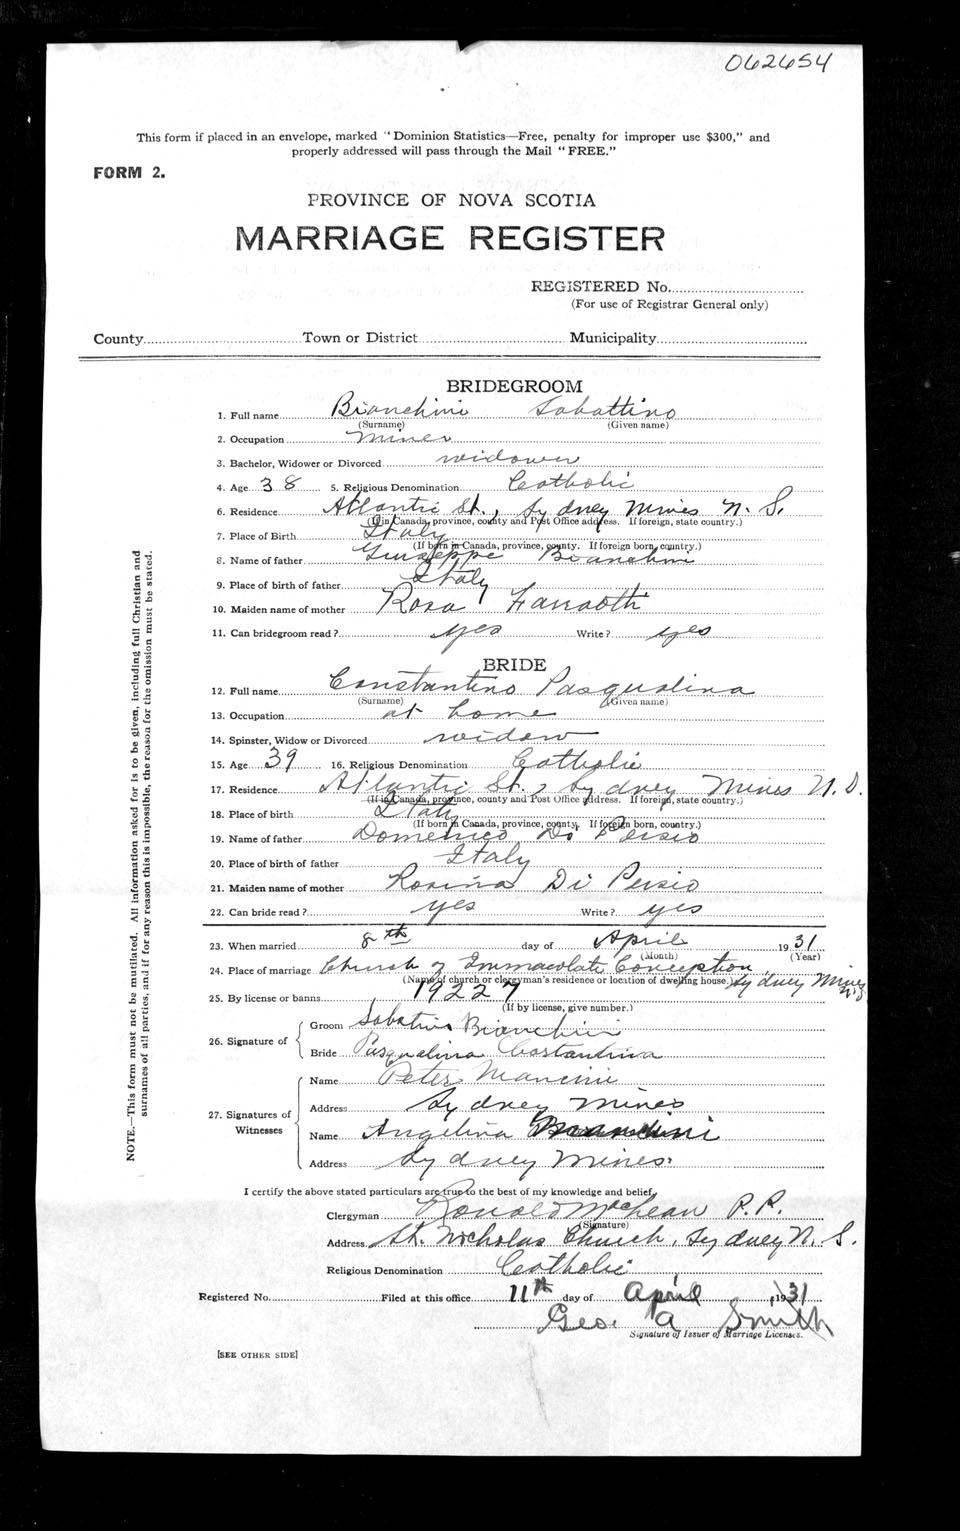 062654
This form if placed in an envelope, marked "Dominion Statistics—Free, penalty for improper use $300," and
properly addressed will pass through the Mail "FREE."
FORM 2.
PROVINCE OF NOVA SCOTIA
MARRIAGE REGISTER
REGISTERED No.
(For use of Registrar General only)
County Town or District Municipality
BRIDEGROOM
1. Full name Bianchini Sabattino
(Surname) (Given name)
2. Occupation miner
3. Bachelor, Widower or Divorced widower
4. Age 38 5. Religious Denomination Catholic
6. Residence Atlantic St., Sydney Mines N. S.
(If in Canada, province, county and Post Office address. If foreign, state country.)
7. Place of Birth Italy
(If born in Canada, province, county. If foreign born, country.)
8. Name of father Guiseppe Bianchini
9. Place of birth of father Italy
10. Maiden name of mother Rosa
11. Can bridegroom read? yes Write? yes
BRIDE
12. Full name Constantino Pasqualina
(Surname) (Given name)
13. Occupation at home
14. Spinster, Widow or Divorced widow
15. Age 39 16. Religious Denomination Catholic
17. Residence Atlantic St., Sydney Mines N. S.
(If in Canada, province, county and Post Office address. If foreign, state country.)
18. Place of birth Italy
(If born in Canada, province, county. If foreign born, country.)
19. Name of father Domenico Di Persio
20. Place of birth of father Italy
21. Maiden name of mother Rosina Di Persio
22. Can bride read? yes Write? yes
23. When married 8th day of April 1931
(Month) (Year)
24. Place of marriage Church of Immacolate Conception, Sydney Mines N.S.
(Name of church or clergyman's residence or location of dwelling house.)
25. By license or banns 19227
(If by license, give number.)
26. Signature of Groom Sabatino Bianchini
Bride Pasqualina Costantina
27. Signatures of Witnesses Name Peter Mancini
Address Sydney Mines
Name Angelina
Address Sydney Mines
I certify the above stated particulars are true to the best of my knowledge and belief,
Clergyman Ronald MacLean P. P.
(Signature)
Address St. Nicholas Church, Sydney N. S.
Religious Denomination Catholic
Registered No. Filed at this office 11th day of April 1931
Geo. A Smith
Signature of Issuer of Marriage Licenses.
[SEE OTHER SIDE]
NOTE.—This form must not be mutilated. All information asked for is to be given, including full Christian and
surnames of all parties, and if for any reason this is impossible, the reason for the omission must be stated.